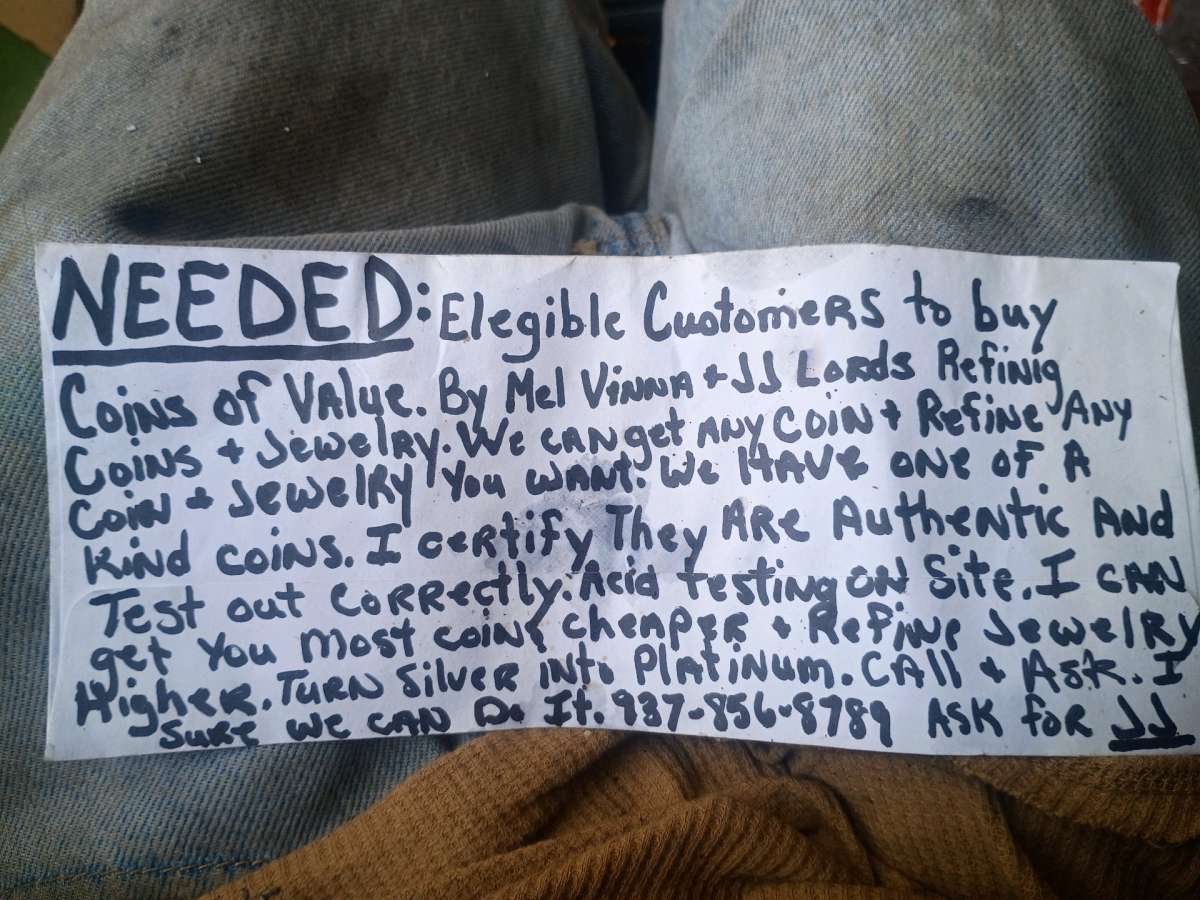 NEEDED: Elegible Customers to buy
Coins of Value. By Mel Vinna + JJ Lords Refinig
Coins + Jewelry. We can get any Coin + Refine Any
Coin + Jewelry You want. We Have one of A
Kind coins. I certify They Are Authentic And
Test out correctly. Acid testing on Site. I can
get You most coins cheaper + Refine Jewelry
Higher. Turn Silver into Platinum. Call + Ask. I
sure we can Do It. 937-856-8789 Ask for JJ